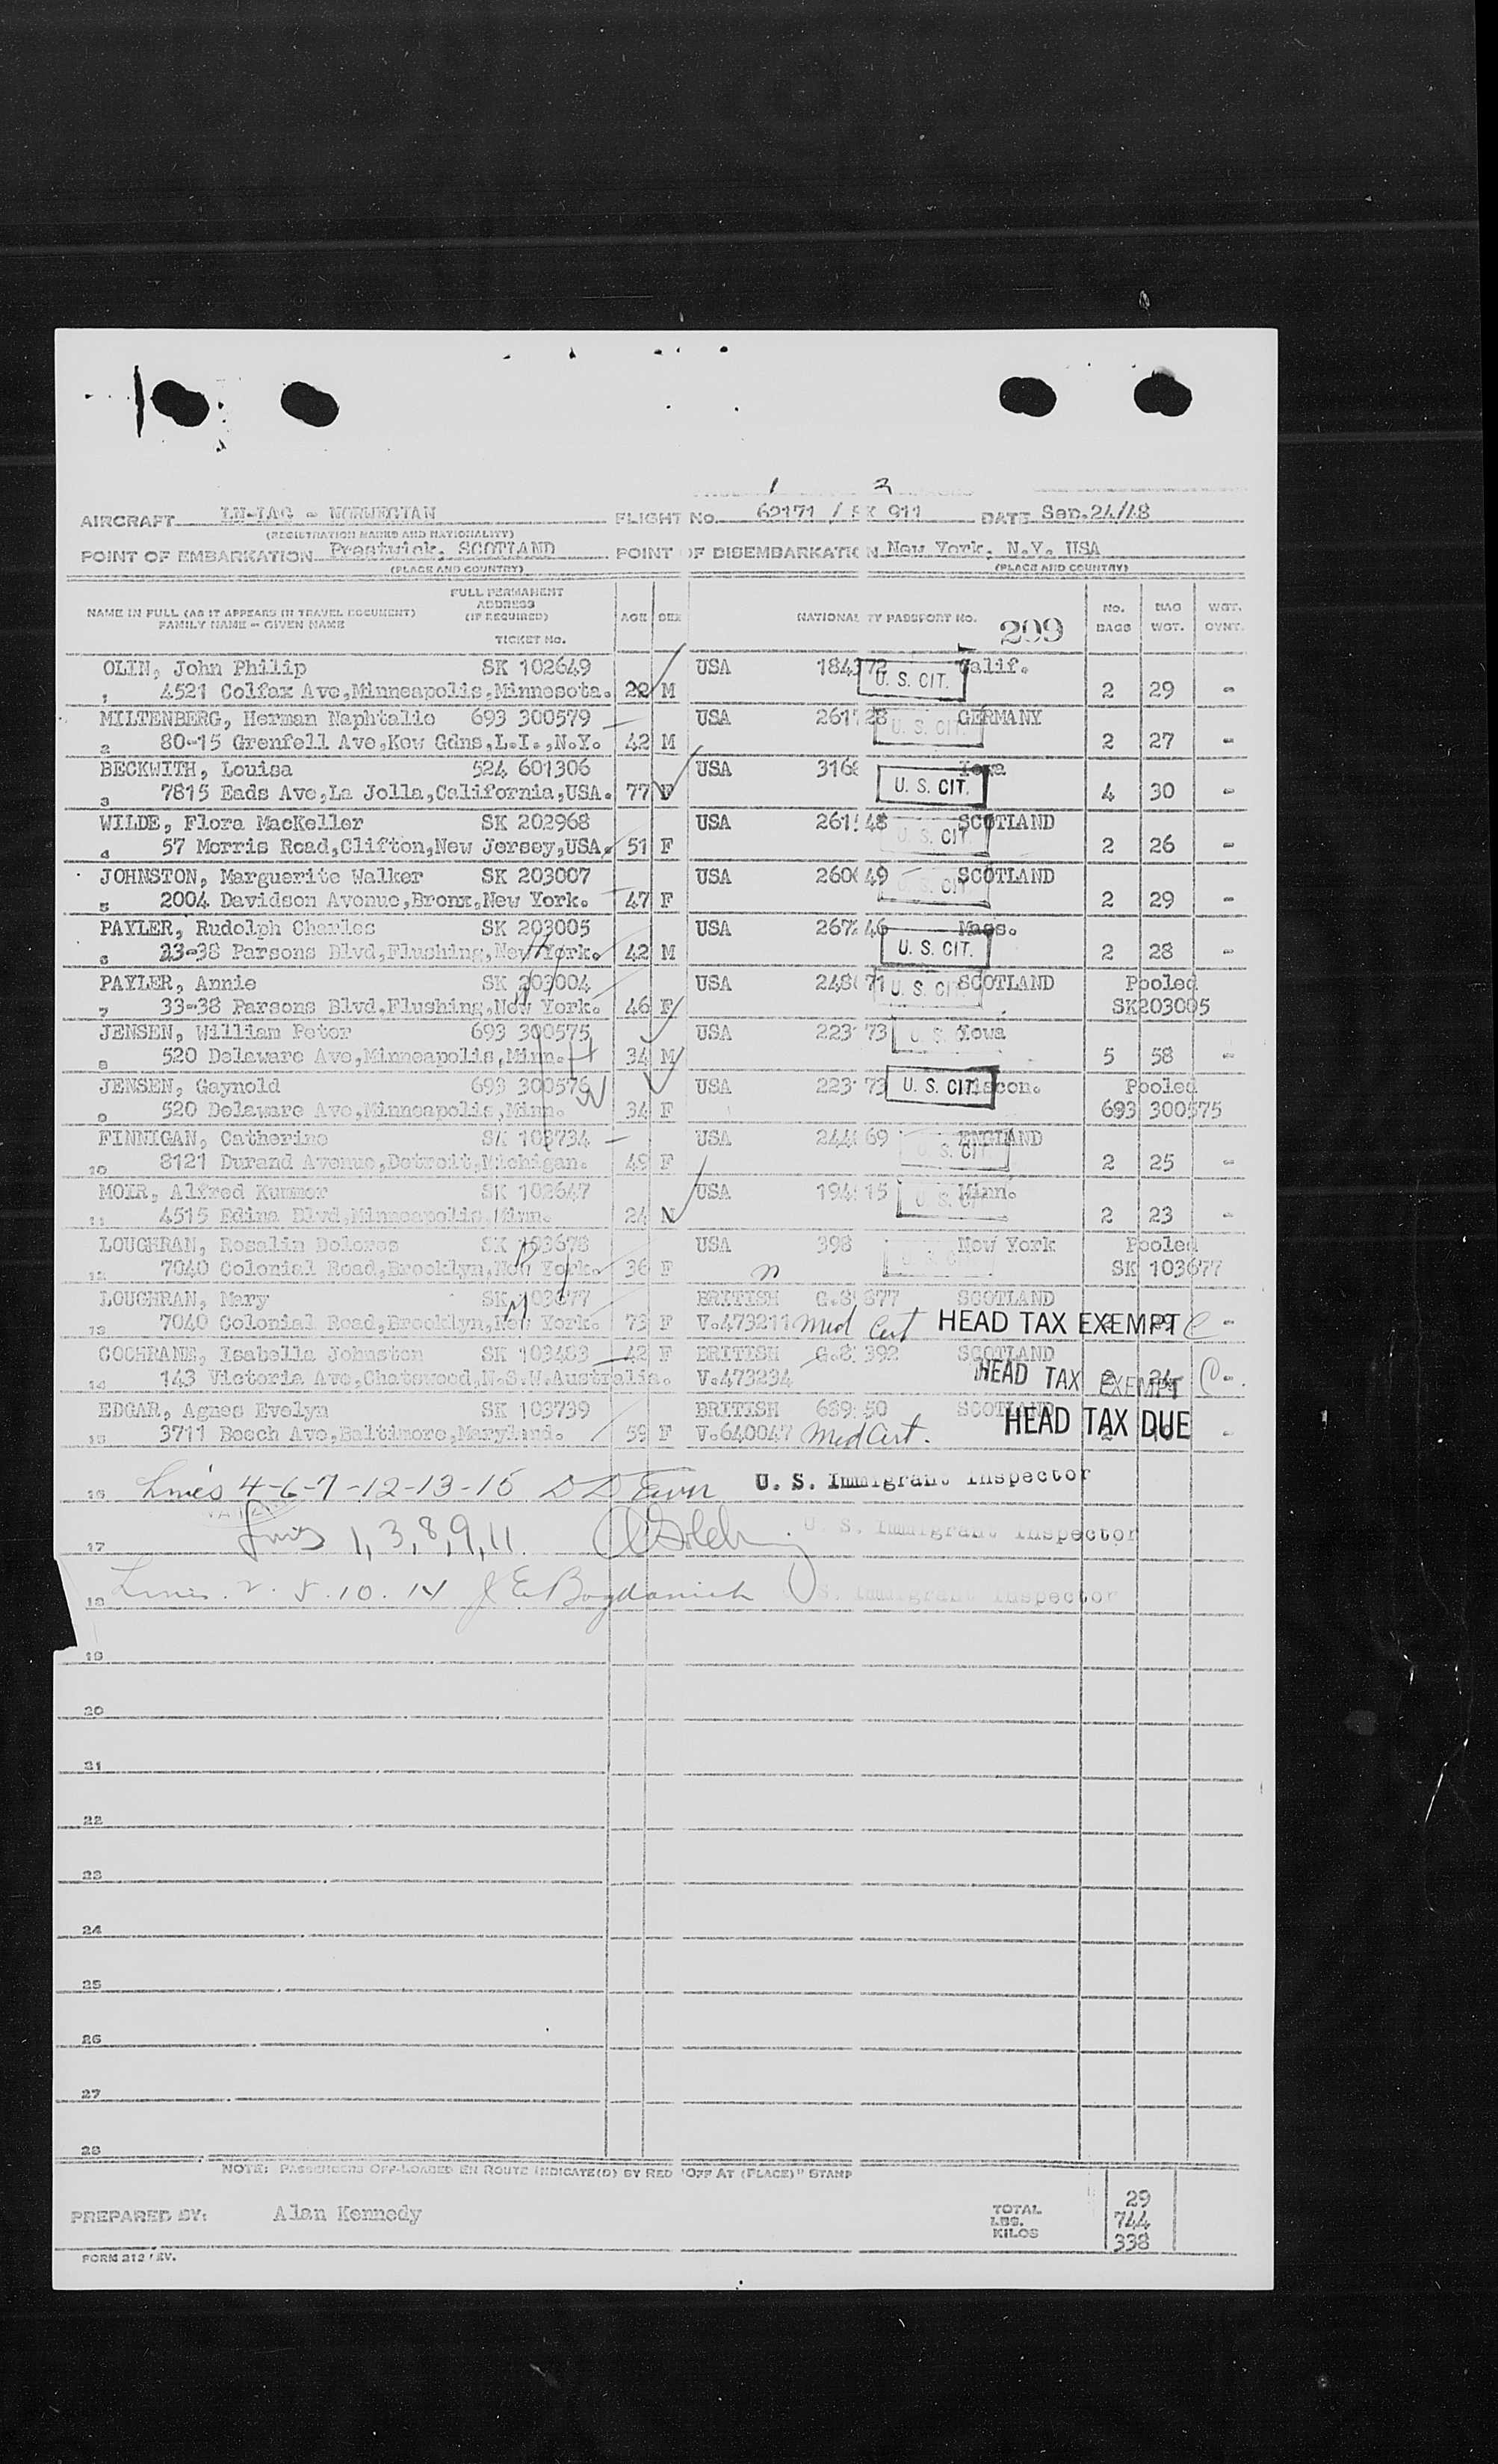 1 2
AIRCRAFT LN-IAG - NORWEGIAN FLIGHT No. 62171 / SK 911 DATE Sep.24/48
(REGISTRATION MARKS AND NATIONALITY)
POINT OF EMBARKATION Prestwick, SCOTLAND POINT OF DISEMBARKATION New York, N.Y. USA
(PLACE AND COUNTRY) (PLACE AND COUNTRY)
NAME IN FULL (AS IT APPEARS IN TRAVEL DOCUMENT) FAMILY NAME - GIVEN NAME FULL PERMANENT ADDRESS (IF REQUIRED) TICKET No. AGE SEX NATIONALITY PASSPORT No. 209 No. BAGS BAG WGT. WGT. OVNT.
OLIN, John Philip SK 102649 USA 184372 Calif. U. S. CIT.
1 4521 Colfax Ave,Minneapolis,Minnesota. 22 M 2 29 -
MILTENBERG, Herman Naphtalie 693 300579 USA 261 28 GERMANY U. S. CIT.
2 80-15 Grenfell Ave,Kew Gdns,L.I.,N.Y. 42 M 2 27 -
BECKWITH, Louisa 524 601306 USA 316 Iowa U. S. CIT.
3 7815 Eads Ave,La Jolla,California,USA. 77 F 4 30 -
WILDE, Flora MacKeller SK 202968 USA 261 48 SCOTLAND U. S. CIT.
4 57 Morris Road,Clifton,New Jersey,USA. 51 F 2 26 -
JOHNSTON, Marguerite Walker SK 203007 USA 260 49 SCOTLAND U. S. CIT.
5 2004 Davidson Avenue,Bronx,New York. 47 F 2 29 -
PAYLER, Rudolph Charles SK 203005 USA 267 46 Mass. U. S. CIT.
6 33-38 Parsons Blvd,Flushing,New York. 42 M 2 28 -
PAYLER, Annie SK 203004 USA 248 71 SCOTLAND Pooled U. S. CIT.
7 33-38 Parsons Blvd,Flushing,New York. 46 F SK203005
JENSEN, William Peter 693 300575 USA 223 73 Iowa U. S. CIT.
8 520 Delaware Ave,Minneapolis,Minn. 34 M 5 58 -
JENSEN, Gaynold 693 300576 USA 223 73 Wiscon. Pooled U. S. CIT.
9 520 Delaware Ave,Minneapolis,Minn. 34 F 693 300575
FINNIGAN, Catherine SK 103734 USA 244 69 ENGLAND U. S. CIT.
10 8121 Durand Avenue,Detroit,Michigan. 49 F 2 25 -
MOIR, Alfred Kummer SK 102647 USA 194 15 Minn. U. S. CIT.
11 4515 Edina Blvd,Minneapolis,Minn. 24 M 2 23 -
LOUGHRAN, Rosalin Dolores SK 103678 USA 398 New York Pooled
12 7040 Colonial Road,Brooklyn,New York. 36 F SK 103677
LOUGHRAN, Mary SK 103677 BRITISH G.B. 677 SCOTLAND
13 7040 Colonial Road,Brooklyn,New York. 73 F V.473211 Med Cert HEAD TAX EXEMPT C -
COCHRANE, Isabella Johnston SK 103483 42 F BRITISH G.B. 392 SCOTLAND
14 143 Victoria Ave,Chatswood,N.S.W.Australia. V.473234 HEAD TAX EXEMPT 2 24 C -
EDGAR, Agnes Evelyn SK 103739 BRITISH 639 50 SCOTLAND
15 3711 Beech Ave,Baltimore,Maryland. 59 F V.640047 Med Cert. HEAD TAX DUE -
16 Lines 4-6-7-12-13-15 U. S. Immigrant Inspector
17 Lines 1, 3, 8, 9, 11 U. S. Immigrant Inspector
18 Lines 2. 5. 10. 14 J E Bogdanich U. S. Immigrant Inspector
19
20
21
22
23
24
25
26
27
28
NOTE: PASSENGERS OFF-LOADED EN ROUTE INDICATE(D) BY RED "OFF AT (PLACE)" STAMP
PREPARED BY: Alan Kennedy TOTAL 29
LBS. 744
KILOS 338
FORM 212 REV.